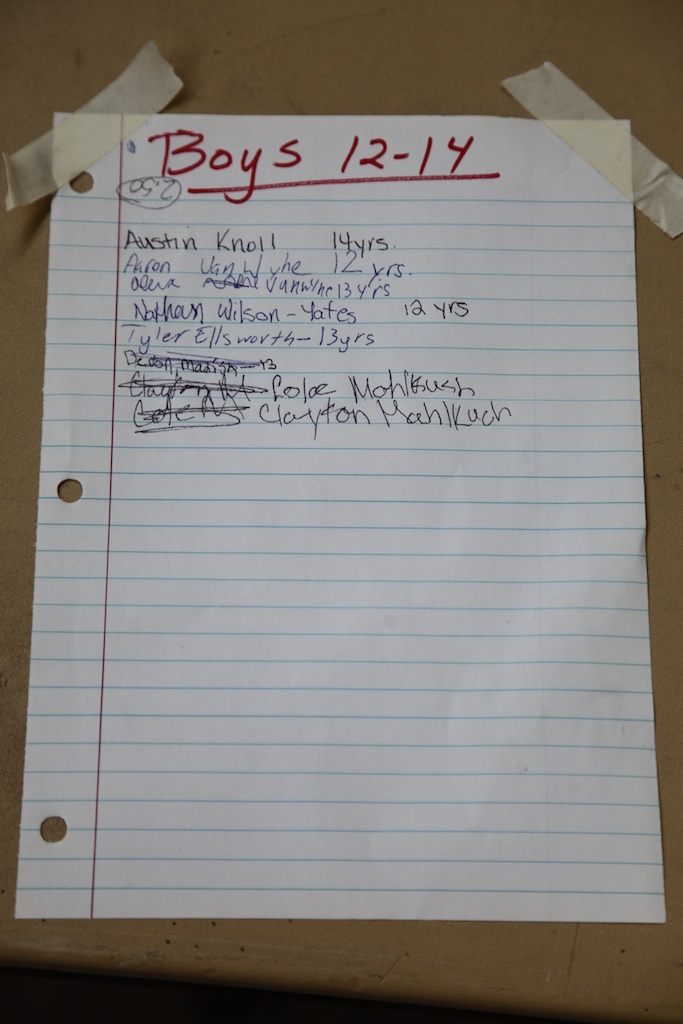 Boys 12-14
2.50
Austin Knoll 14yrs.
Aaron VanWyhe 12 yrs.
Vanwyhe 13 yrs
Nathan Wilson-Yates 12 yrs
Tyler Ellsworth-13yrs
Devon, Madison-13
Clayton M Cole Mohlkush
Cole M Clayton Mahlkuch